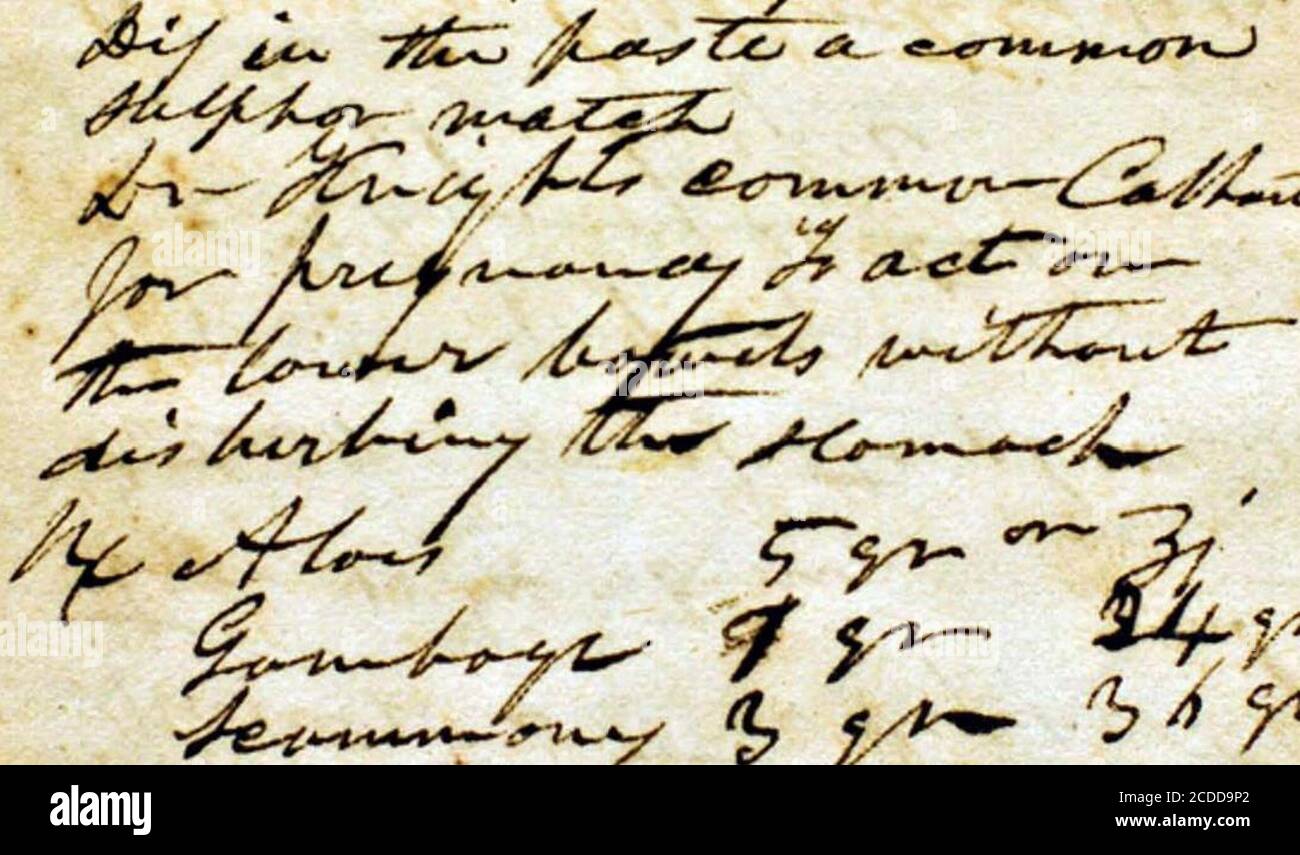 Dip in the paste a common
sulphor match
Dr Knights common Cathar
for pregnancy to act on
the lower bowels without
disturbing the stomach
Rx Aloes 5 gr or ʒj
Gamboge gr 24 gr
Scammony 3 gr 36 gr
alamy
Image ID: 2CDD9P2
www.alamy.com